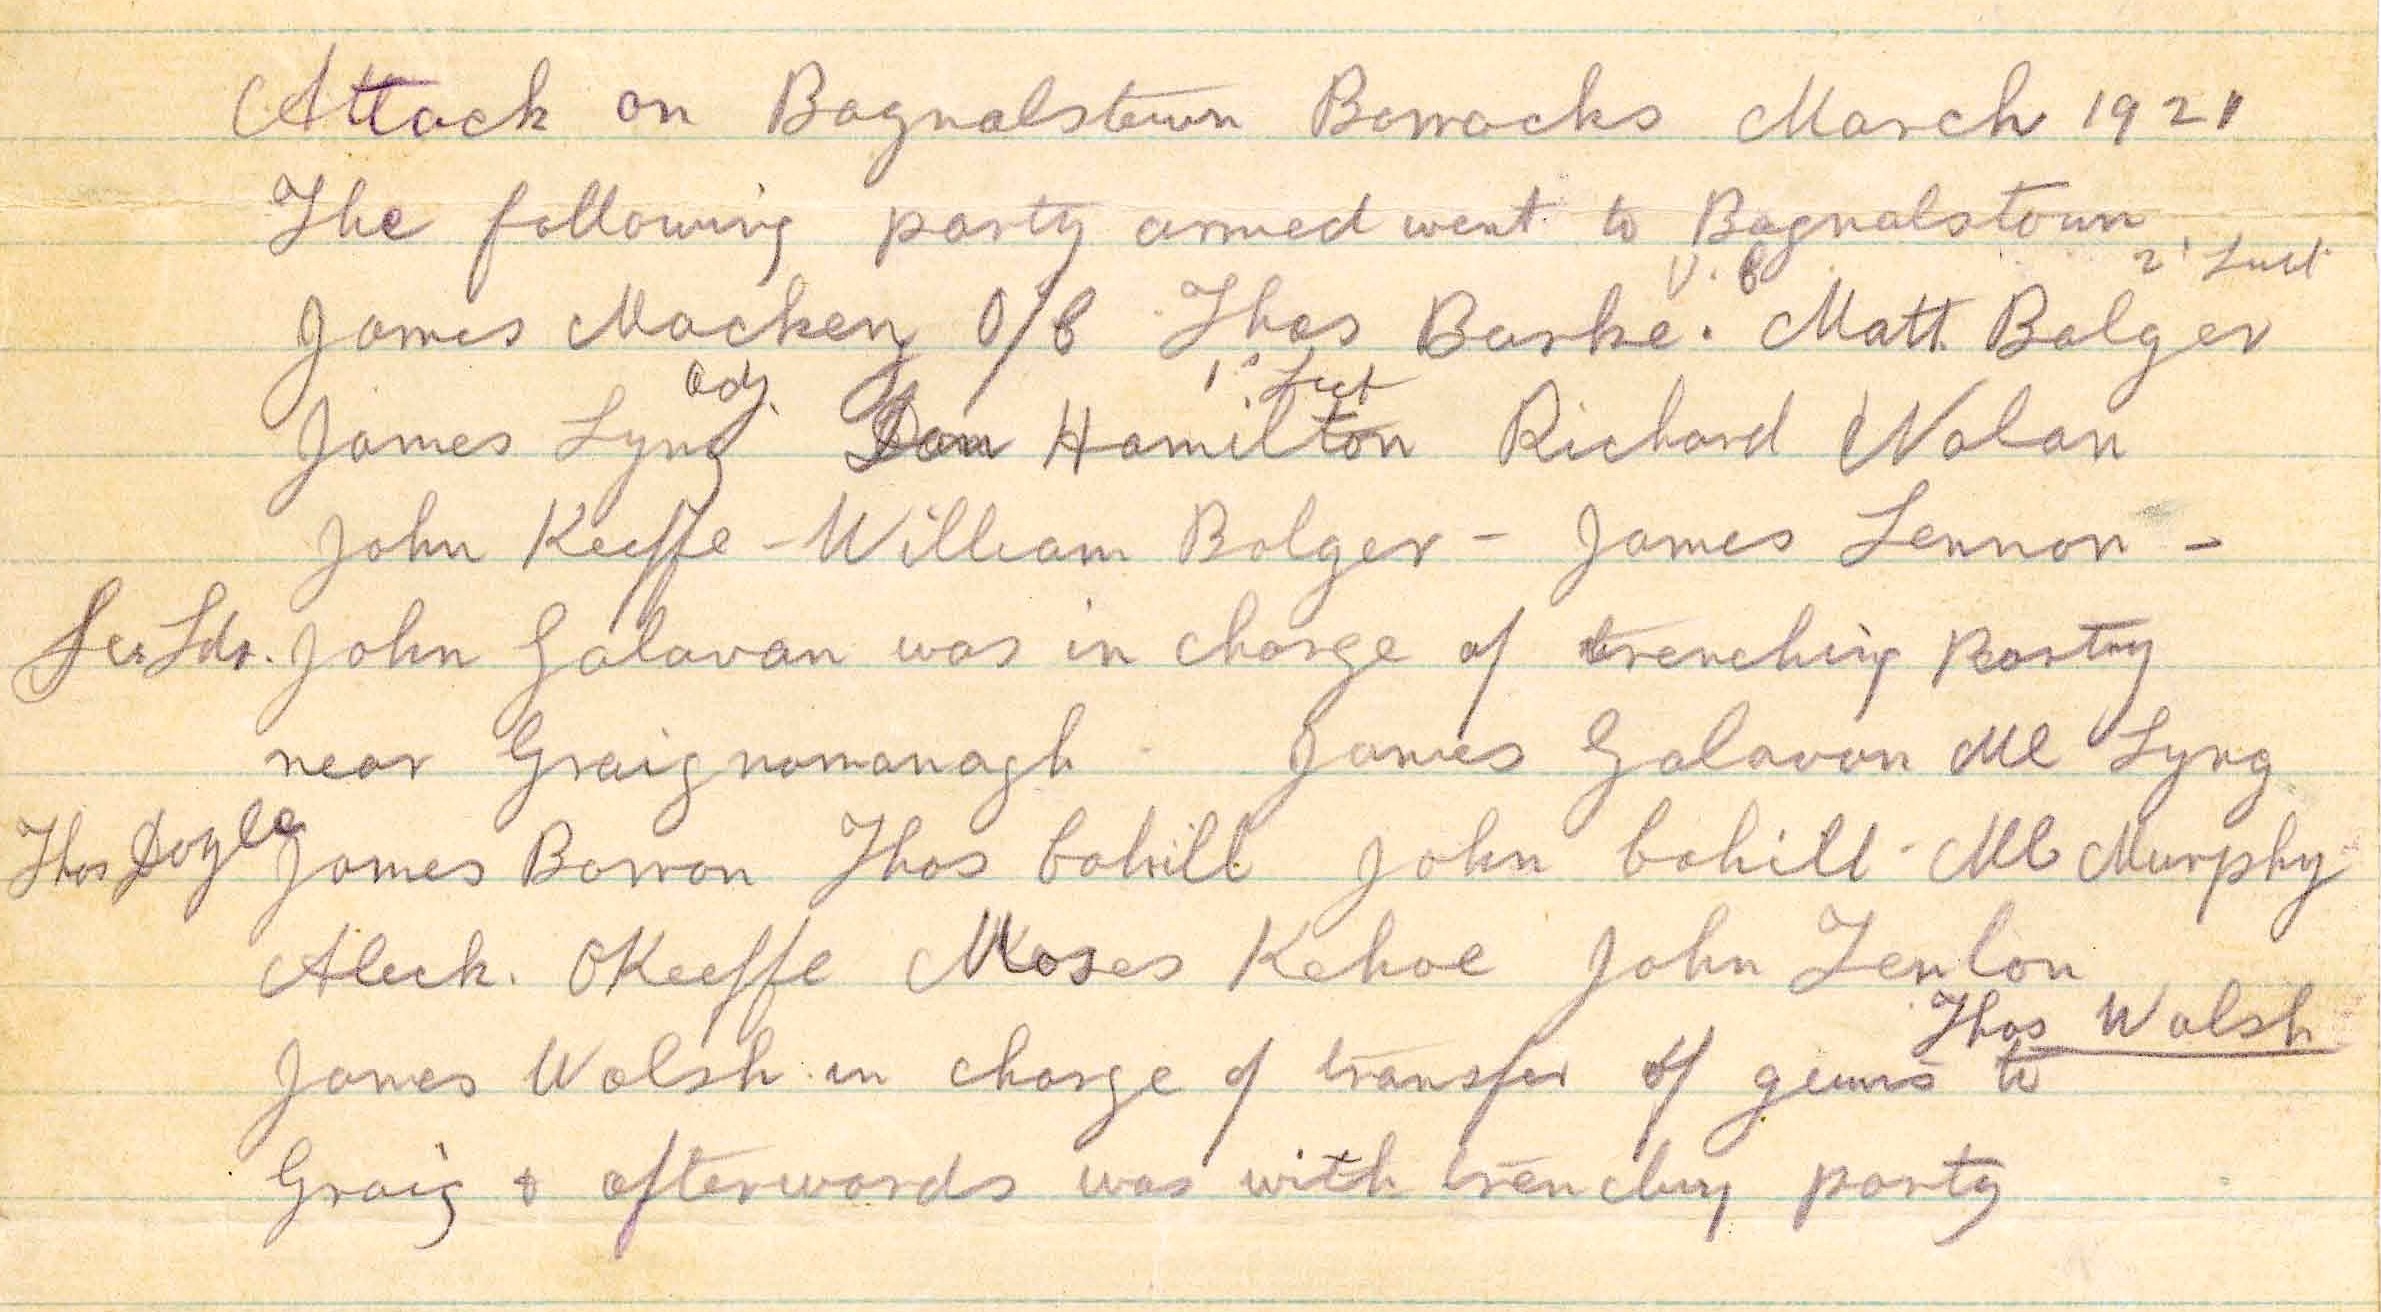 Attack on Bagnalstown Barracks March 1921
The following party armed went to Bagnalstown
V. C 2' Lieut
James Mackey O/C Thos Burke. Matt. Bolger
Adj. 1st Lieut
James Lyng Dan Hamilton Richard Nolan
John Keeffe - William Bolger - James Lennon -
Sec Ldr. John Galavan was in charge of trenching Party
near Graignamanagh James Galavan Ml Lyng
Thos Doyle James Barron Thos Cahill John Cahill - Ml Murphy
Aleck. OKeeffe Moses Kehoe John Fenlon
Thos Walsh
James Walsh in charge of transfer of guns to
Graig & afterwards was with trenching party